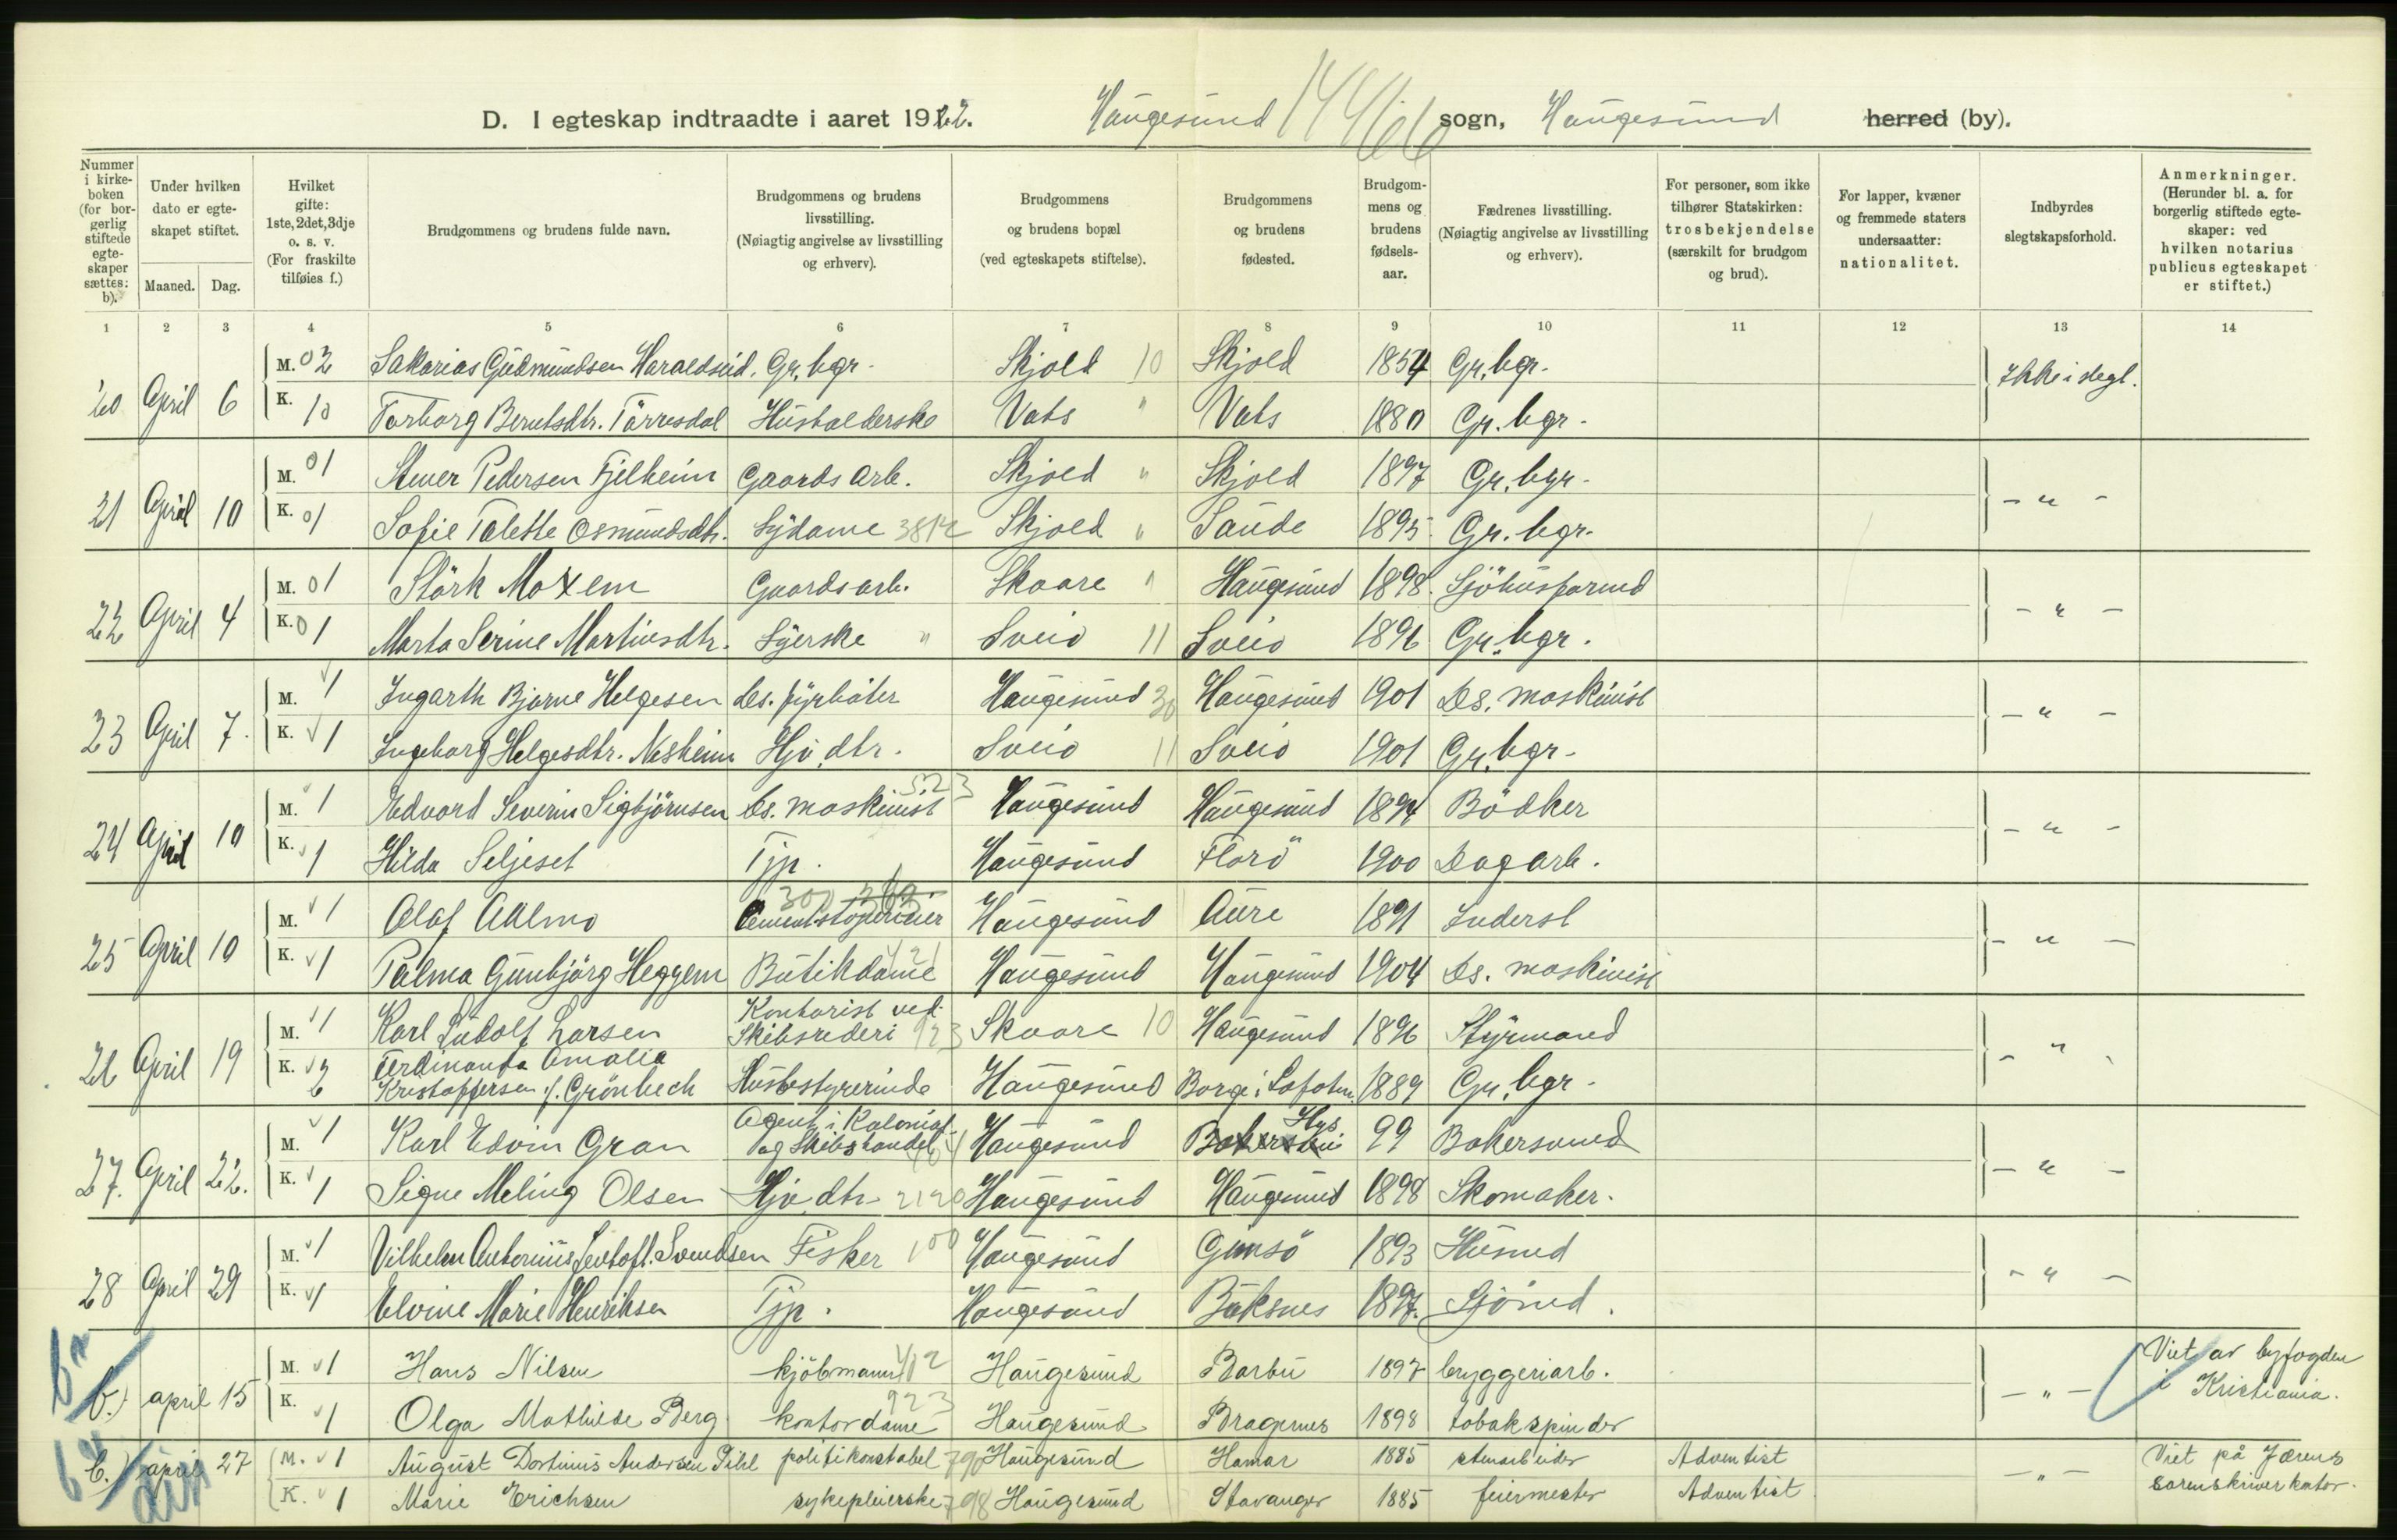 D. I egteskap indtraadte i aaret 1922. Haugesund sogn, Haugesund herred (by).
Nummer i kirke-boken (for bor-gerlig stiftede egte-skaper sættes: b).
Under hvilken dato er egte-skapet stiftet.
Maaned. Dag.
Hvilket gifte: 1ste, 2det, 3dje o. s. v. (For fraskilte tilføies f.)
Brudgommens og brudens fulde navn.
Brudgommens og brudens livsstilling. (Nøiagtig angivelse av livsstilling og erhverv).
Brudgommens og brudens bopæl (ved egteskapets stiftelse).
Brudgommens og brudens fødested.
Brudgom-mens og brudens fødsels-aar.
Fædrenes livsstilling. (Nøiagtig angivelse av livsstilling og erhverv).
For personer, som ikke tilhører Statskirken: trosbekjendelse (særskilt for brudgom og brud).
For lapper, kvæner og fremmede staters undersaatter: nationalitet.
Indbyrdes slegtskapsforhold.
Anmerkninger. (Herunder bl. a. for borgerlig stiftede egte-skaper: ved hvilken notarius publicus egteskapet er stiftet.)
1 2 3 4 5 6 7 8 9 10 11 12 13 14
M. 02 Sakarias Gudmundsen Haraldseid. Gr. bgr. Skjold 10 Skjold 1854 Gr. bgr. Ikke i slegt.
20 April 6 K. 10 Torborg Berntsdtr. Törresdal Husholderske Vats " Vats 1880 Gr. bgr.
M. 01 Stener Pedersen Fjelheim Gaards arb. Skjold " Skjold 1897 Gr. bgr.
21 April 10 K. 01 Sofie Talette Osmundsdtr. Sydame Skjold " Saude 1895 Gr. bgr. - " -
M. 01 Störk Moxem Gaardsarb. Skaare " Haugesund 1898 Sjöhusformd
22 April 4 K. 01 Marta Serine Martinsdtr. Syerske " Sveio 11 Sveio 1896 Gr. bgr. - " -
M. 1 Ingarth Bjarne Helgesen Ds. fyrböter Haugesund 30 Haugesund 1901 Ds. maskinist
23 April 7. K. 1 Ingeborg Helgesdtr. Nesheim Hjv. dtr. Sveio 11 Sveio 1901 Gr. bgr. - " -
M. 1 Edvard Severin Sigbjörnsen Ds. maskinist 523 Haugesund Haugesund 1894 Bödker
24 April 10 K. 1 Hilda Seljeset Tjp. Haugesund Florö 1900 Dagarb. - " -
M. 1 Olaf Aalmo Haugesund Aure 1891 Inderst
25 April 10 K. 1 Palma Gunbjörg Heggem Butikdame 421 Haugesund Haugesund 1904 Ds. maskinist - " -
M. 1 Karl Ludolf Larsen Kontorist ved Skibsrederi 923 Skaare 10 Haugesund 1896 Styrmand
26 April 19 K. 2 Ferdinanda Amalia Kristoffersen f. Grönbech Husbestyrerinde Haugesund Borge i Lofoten. 1889 Gr. bgr.
M. 1 Karl Edvin Gran Agent i Kolonial og Skibshandel Haugesund Hus 99 Bakersvend
27. April 22. K. 1 Signe Meling Olsen Hjv. dtr 2120 Haugesund Haugesund 1898 Skomaker. - " -
M. 1 Vilhelm Antonius Svendsen Fisker 100 Haugesund Gimsö 1893 Husmd
28 April 29 K. 1 Elvine Marie Henriksen Tjp. Haugesund Buksnes 1897. Sjömd. - " -
M. 1 Hans Nilsen kjöbmann 402 Haugesund Barbu 1897 bryggeriarb. Viet av byfogden
b.) april 15 K. 1 Olga Mathilde Berg kontordame 923 Haugesund Bragernes 1898 tobakspinder - " - i Kristiania.
b.) april 27 M. 1 August Dortinus Andersen Pihl politikonstabel 790 Haugesund Hamar 1885 stenarbeider Adventist - " - Viet på Jærens
K. 1 Marie Erichsen sykepleierske 798 Haugesund Stavanger 1885 feiermester Adventist sorenskriverkontor.